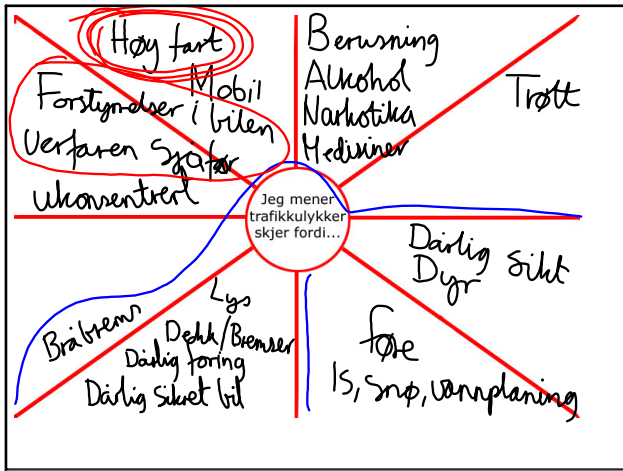 Høy fart
Mobil
Forstyrrelser i bilen
uerfaren Sjåfør
ukonsentrert
Berusning
Alkohol
Narkotika
Medisiner
Trøtt
Jeg mener
trafikkulykker
skjer fordi...
Dårlig Sikt
Dyr
Føre
Is, Snø, vannplaning
Lys
Dekk/Bremser
Dårlig foring
Dårlig sikret bil
Bråbrems